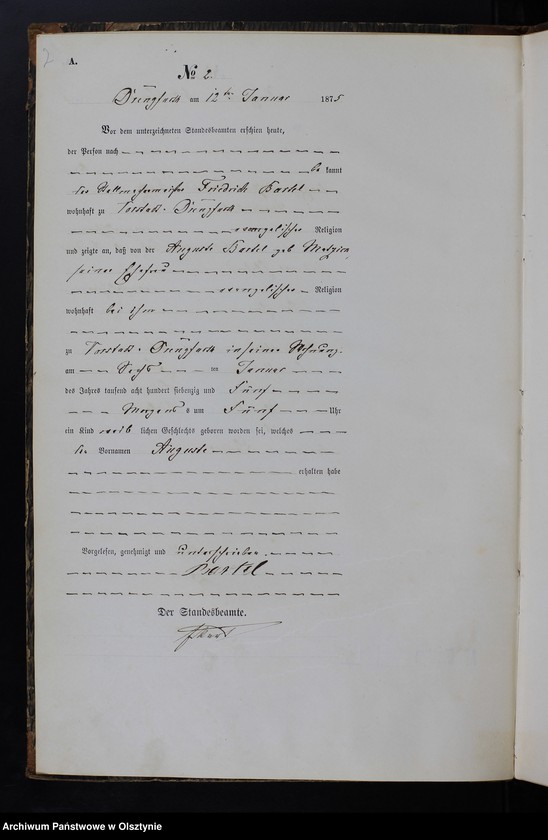 2
A.
No 2.
am 12ten Januar 1875
Vor dem unterzeichneten Standesbeamten erschien heute,
der Person nach
be kannt
der Friedrich Bartel
wohnhaft zu
evangelischer Religion
und zeigte an, daß von der Auguste Bartel geb
seiner Ehefrau
evangelischer Religion
wohnhaft bei ihm
zu in seiner Wohnung
am Sechs im Januar
des Jahres tausend acht hundert siebenzig und Fünf
Morgens um Fünf Uhr
ein Kind weib lichen Geschlechts geboren worden sei, welches
den Vornamen Auguste
erhalten habe
Vorgelesen, genehmigt und unterschrieben
Bartel
Der Standesbeamte.
Archiwum Państwowe w Olsztynie